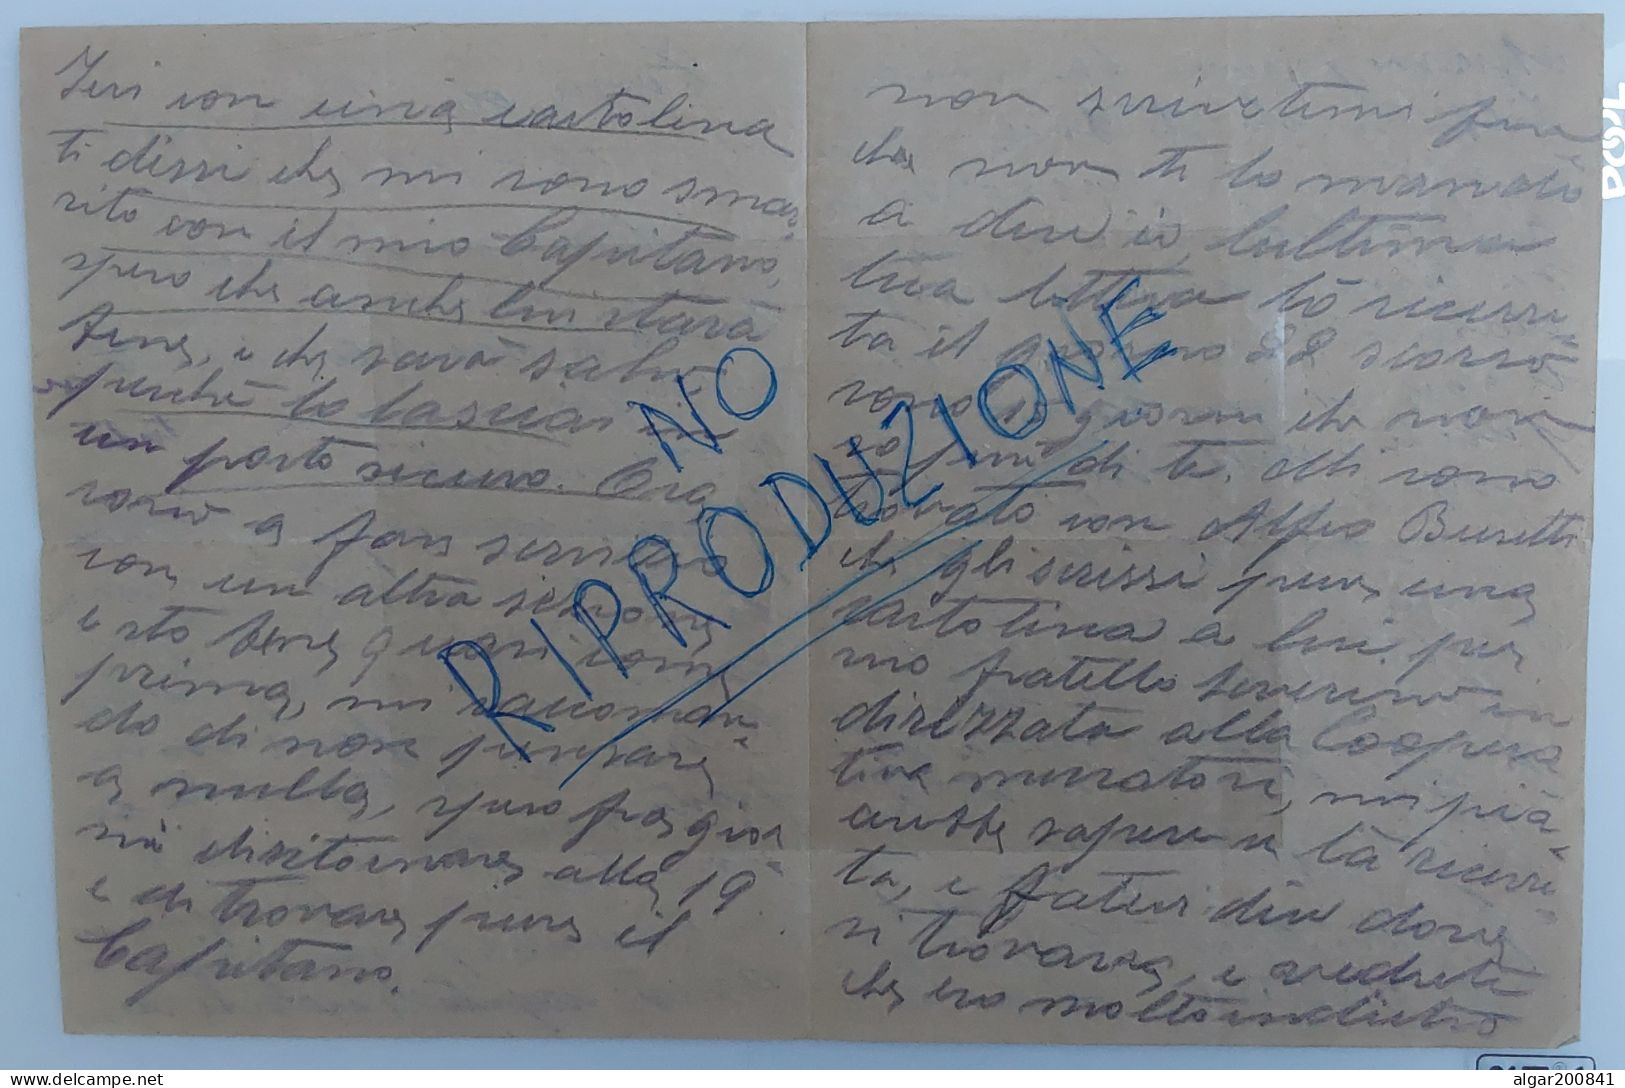 Ieri con una cartolina
ti dissi che mi sono smar
rito con il mio Capitano,
spero che anche lui starà
bene, e che sarà salvo
perchè lo lasciai in
un posto sicuro. Ora
sono a fare servizio
con un altra sezione
e sto bene quasi come
prima, mi raccoman
do di non pensare
a nulla, spero fra gior
ni di ritornare alla 19ª
e di trovare pure il
Capitano.
non scrivetemi fin
che non ti lo manderò
a dire io, lultima
tua lettera lò ricevu
ta il giorno 22 scorso
sono giorni che non
so più di te. Mi sono
trovato con Alfio Buretti
che gli scrissi pure una
cartolina a lui per
mio fratello Severino in
dirizzata alla Coopera
tiva muratori, mi pia
cerebbe sapere se la ricevu
ta, e fatevi dire dove
si trovava, e vedrete
che ero molto indietro
NO
RIPRODUZIONE
POOL
algar200841